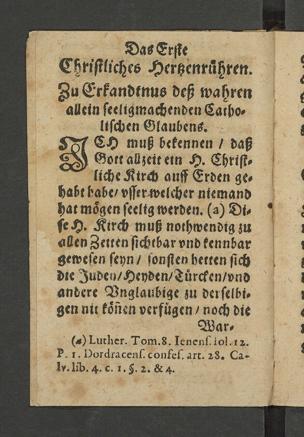 Das Erste
Christliches Hertzenrühren.
Zu Erkandtnus deß wahren
allein seeligmachenden Catho-
lischen Glaubens.
ICH muß bekennen / daß
Gott allzeit ein H. Christ-
liche Kirch auff Erden ge-
habt habe / vsser welcher niemand
hat mögen seelig werden. (a) Di-
se H. Kirch muß nothwendig zu
allen Zetten sichtbar vnd kennbar
gewesen seyn / sonsten hetten sich
die Juden / Heyden / Türcken / vnd
andere Vnglaubige zu derselbi-
gen nit köñen verfügen / noch die
War-
(a) Luther. Tom. 8. Ienens. fol. 12.
P. 1. Dordracens. confes. art. 28. Ca-
lv. lib. 4. c. 1. §. 2. & 4.